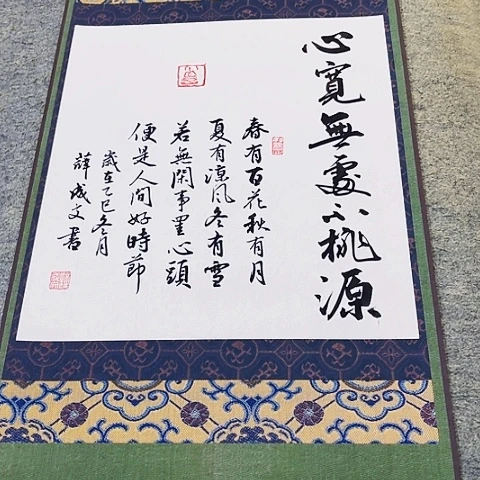 心寬無處不桃源
春有百花秋有月
夏有涼風冬有雪
若無閑事罣心頭
便是人间好時節
歲在乙巳冬月
薛成文書